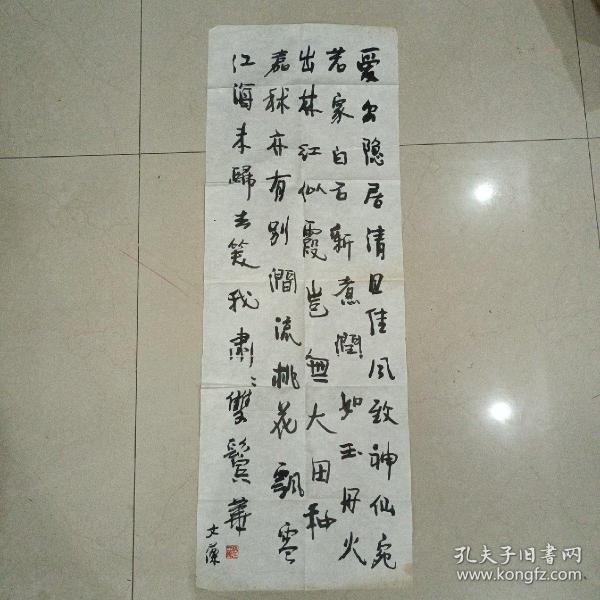 爱公隐居清且佳风致神仙宛
若家白石新煮润如玉丹火
出林红似霞岂無大田种
嘉秫亦有别澗流桃花飘零
江海未歸去笑我肃〻雙鬓華
文
孔夫子旧书网
www.kongfz.com